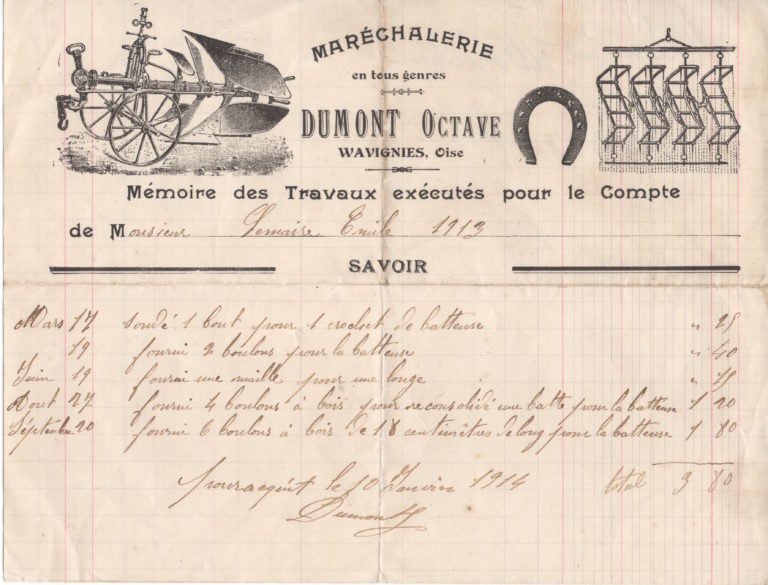 MARÉCHALERIE
en tous genres
DUMONT OCTAVE
WAVIGNIES, Oise
Mémoire des Travaux exécutés pour le Compte
de Monsieur Lemaire Emile 1913
SAVOIR
Mars 17 soudé 1 bout pour 1 crochet de batteuse " 25
19 fourni 2 boulons pour la batteuse " 40
Juin 19 fourni une maille pour une longe " 15
Aout 27 fourni 4 boulons à bois pour reconsolidé une batte pour la batteuse 1 20
Septembre 20 fourni 6 boulons à bois de 18 centimètres de long pour la batteuse 1 80
total 3 80
pour acquit le 10 Janvier 1914
Dumont